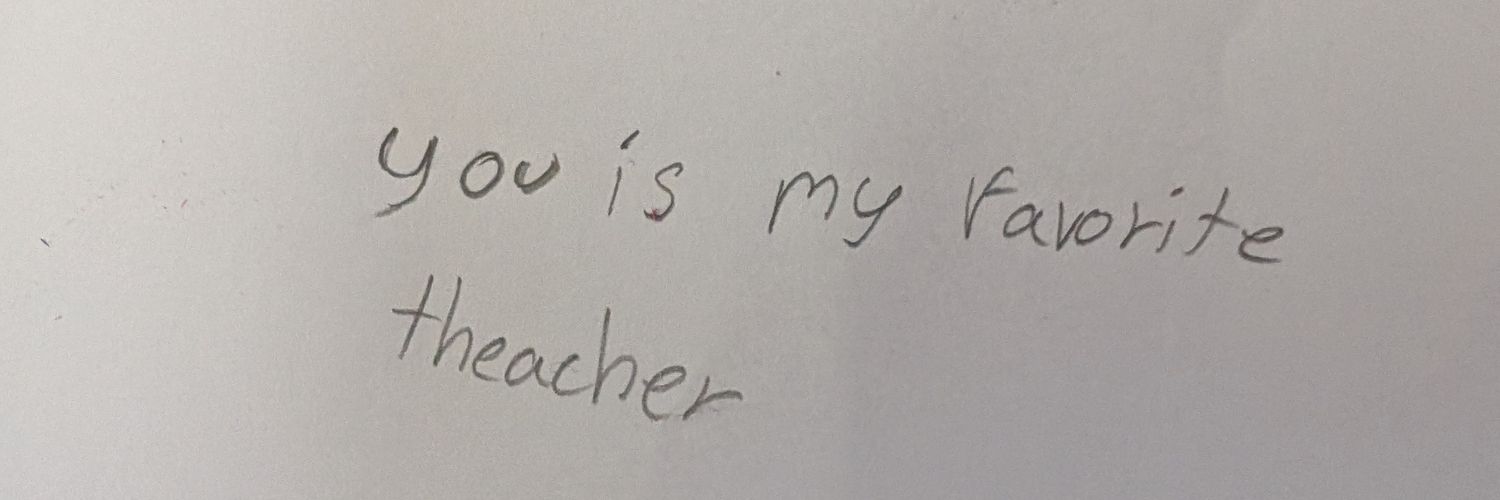 you is my favorite
theacher